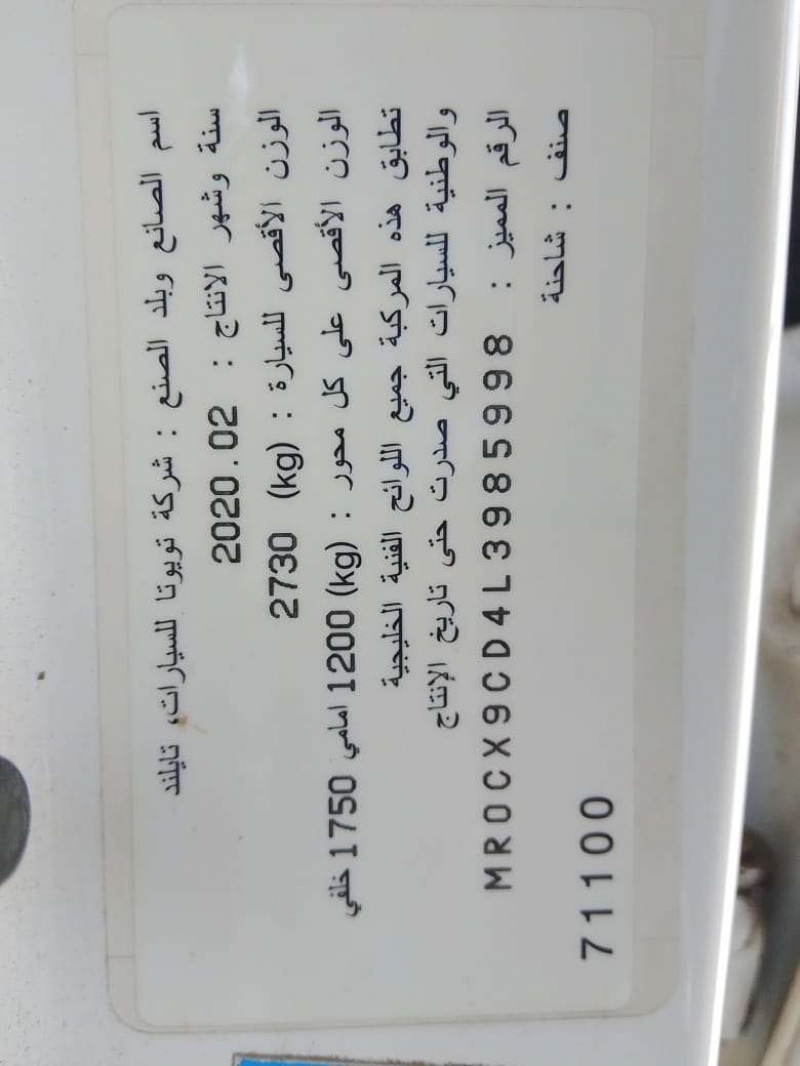 اسم الصانع وبلد الصنع : شركة تويوتا للسيارات، تايلند
سنة وشهر الانتاج : 2020.02
الوزن الأقصى للسيارة : (kg) 2730
الوزن الأقصى على كل محور : (kg) 1200 امامي 1750 خلفي
تطابق هذه المركبة جميع اللوائح الفنية الخليجية
والوطنية للسيارات التي صدرت حتى تاريخ الإنتاج
الرقم المميز : MR0CX9CD4L3985998
صنف : شاحنة
71100